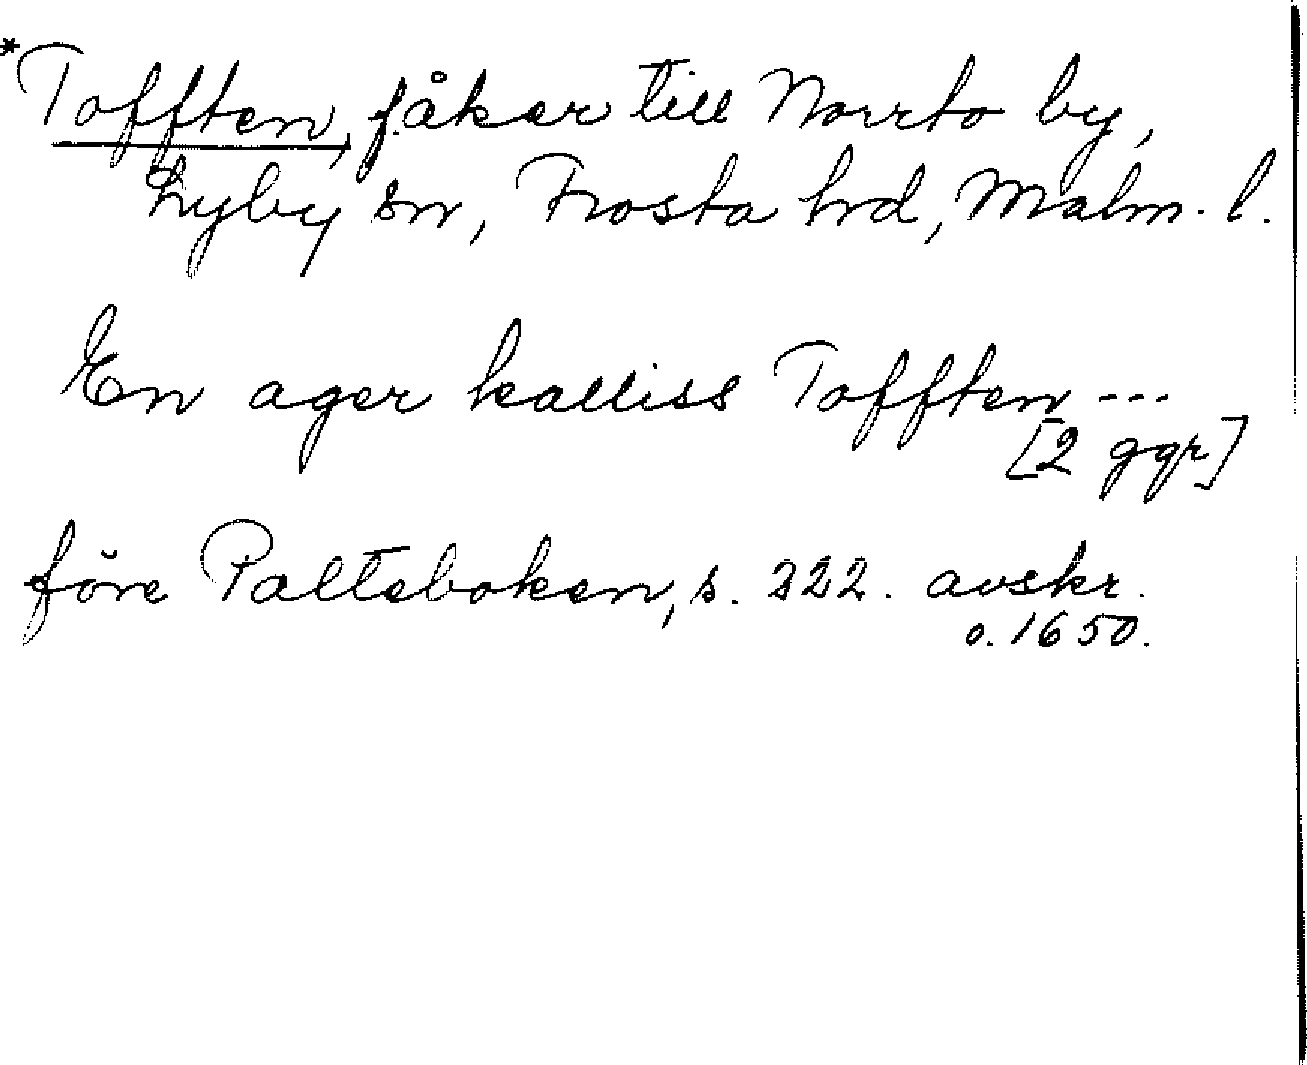 *Tofften, f. åker till Norrto by,
Lyby sn, Frosta hd, Malm. l.
En ager kalliss Tofften ---
[2 ggr]
före Palteboken, s. 322. avskr.
o. 1650.